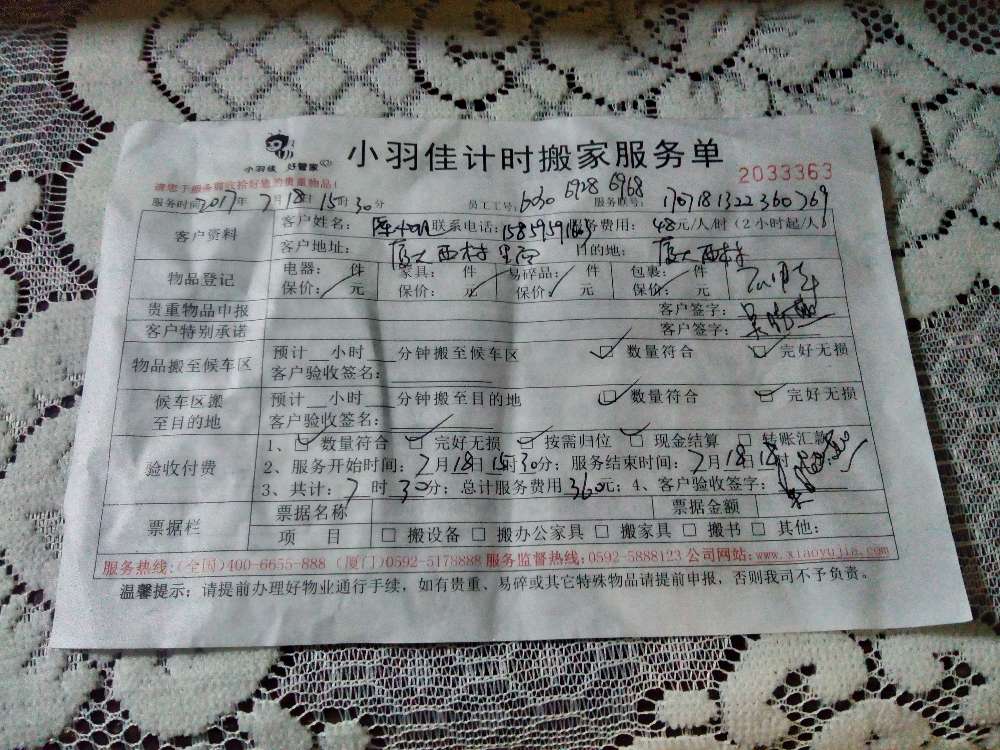 小羽佳 好管家
小羽佳计时搬家服务单
2033363
服务时间2017年7月18日15时30分 员工工号:6030 6928 6968 服务联号:1707181322360769
客户资料
客户姓名: 联系电话: 服务费用: 48元/人/时(2小时起/人)
客户地址: 厦大西村 目的地: 厦大西村
物品登记
电器: 件 家具: 件 易碎品: 件 包裹: 件
保价: 元 保价: 元 保价: 元 保价: 元
贵重物品申报 客户签字:
客户特别承诺 客户签字:
物品搬至候车区
预计 小时 分钟搬至候车区 ☑ 数量符合 ☑ 完好无损
客户验收签名:
候车区搬
至目的地
预计 小时 分钟搬至目的地 ☑ 数量符合 ☑ 完好无损
客户验收签名:
验收付费
1、☑ 数量符合 ☑ 完好无损 ☑ 按需归位 ☑ 现金结算 □ 转账汇款
2、服务开始时间:7月18日15时30分; 服务结束时间:7月18日18时
3、共计:7时30分; 总计服务费用360元; 4、客户验收签字:
票据栏
票据名称 票据金额
项 目 □ 搬设备 □ 搬办公家具 □ 搬家具 □ 搬书 □ 其他:
服务热线:(全国)400-6655-888 (厦门)0592-5178888 服务监督热线:0592-5888123 公司网站:www.xiaoyujia.com
温馨提示: 请提前办理好物业通行手续,如有贵重、易碎或其它特殊物品请提前申报,否则我司不予负责。